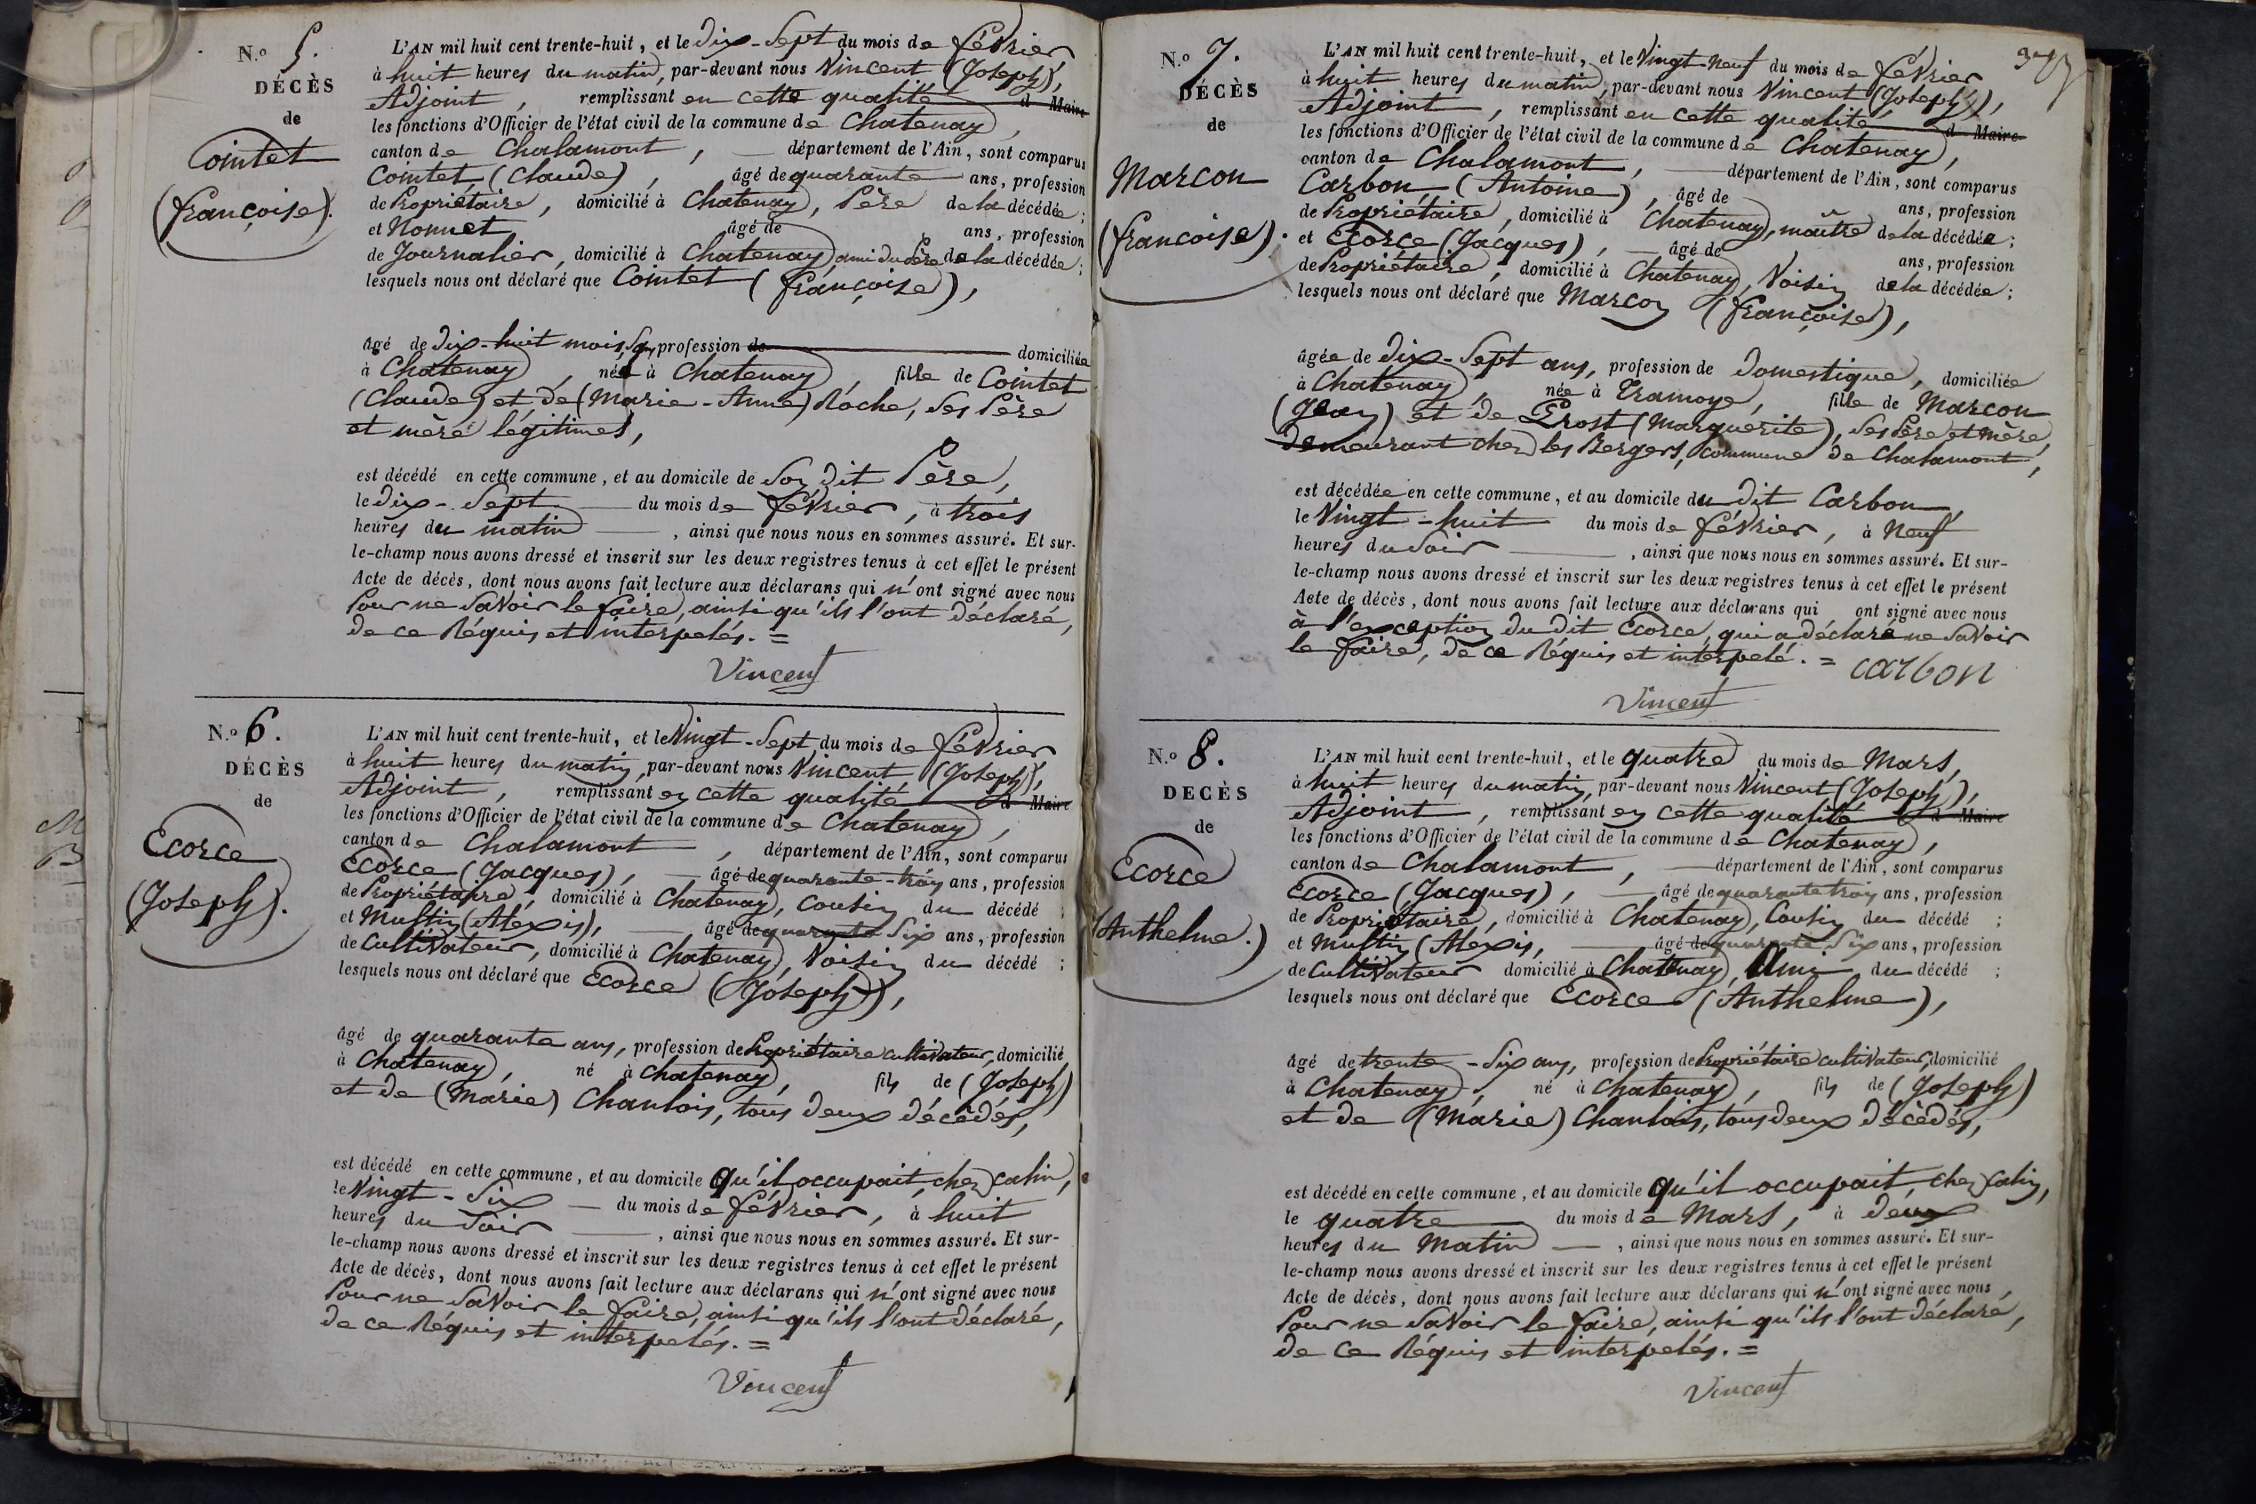 N.o 5.
DÉCÈS
de
Cointet
(françoise).
L'AN mil huit cent trente-huit, et le dix-Sept du mois de février
à huit heures du matin, par-devant nous Vincent (Joseph),
Adjoint, remplissant en cette qualité d Maire
les fonctions d'Officier de l'état civil de la commune de Chatenay,
canton de Chalamont, département de l'Ain, sont comparus
Cointet (Claude), âgé de quarante ans, profession
de Propriétaire, domicilié à Chatenay, Père de la décédée;
et Nonnet âgé de ans, profession
de Journalier, domicilié à Chatenay, ami du Père de la décédée;
lesquels nous ont déclaré que Cointet (françoise),
âgé de dix-huit mois, San profession de domiciliée
à Chatenay, née à Chatenay, fille de Cointet
(Claude) et de (Marie-Anne) Roche, Ses Père
et mère légitimes,
est décédé en cette commune, et au domicile de Son dit Père,
le dix-Sept du mois de février, à trois
heures du matin, ainsi que nous nous en sommes assuré. Et sur-
le-champ nous avons dressé et inscrit sur les deux registres tenus à cet effet le présent
Acte de décès, dont nous avons fait lecture aux déclarans qui n'ont signé avec nous
Pour ne Savoir le faire, ainsi qu'ils l'ont déclaré,
de ce Réquis et interpelés. =
Vincent
N.o 6.
DÉCÈS
de
Ecorce
(Joseph).
L'AN mil huit cent trente-huit, et le Vingt-Sept du mois de février
à huit heures du matin, par-devant nous Vincent (Joseph),
Adjoint, remplissant en cette qualité d Maire
les fonctions d'Officier de l'état civil de la commune de Chatenay,
canton de Chalamont, département de l'Ain, sont comparus
Ecorce (Jacques), âgé de quarante-trois ans, profession
de Propriétaire, domicilié à Chatenay, Cousin du décédé;
et Multin (Alexis), âgé de quarante Six ans, profession
de Cultivateur, domicilié à Chatenay, Voisin du décédé;
lesquels nous ont déclaré que Ecorce (Joseph),
âgé de quarante ans, profession de Propriétaire cultivateur, domicilié
à Chatenay, né à Chatenay, fils de (Joseph)
et de (Marie) Chanlois, tous deux décédés,
est décédé en cette commune, et au domicile qu'il occupait, chez calin,
le Vingt-Six du mois de février, à huit
heures du Soir, ainsi que nous nous en sommes assuré. Et sur-
le-champ nous avons dressé et inscrit sur les deux registres tenus à cet effet le présent
Acte de décès, dont nous avons fait lecture aux déclarans qui n'ont signé avec nous
Pour ne Savoir le faire, ainsi qu'ils l'ont déclaré,
de ce Réquis et interpelés. =
Vincent
N.o 7.
DÉCÈS
de
Marcon
(françoise).
L'AN mil huit cent trente-huit, et le Vingt-Neuf du mois de février
à huit heures du matin, par-devant nous Vincent (Joseph),
Adjoint, remplissant en cette qualité d Maire
les fonctions d'Officier de l'état civil de la commune de Chatenay,
canton de Chalamont, département de l'Ain, sont comparus
Carbon (Antoine), âgé de ans, profession
de Propriétaire, domicilié à Chatenay, maître de la décédée;
et Ecorce (Jacques), âgé de ans, profession
de Propriétaire, domicilié à Chatenay, Voisin de la décédée;
lesquels nous ont déclaré que Marcon (françoise),
âgée de dix-Sept ans, profession de Domestique, domiciliée
à Chatenay, née à Tramoye, fille de Marcon
(Jean) et de Prost (Marguerite), Ses Père et Mère,
demeurant chez les Bergers, commune de Chalamont,
est décédée en cette commune, et au domicile du dit Carbon,
le Vingt-huit du mois de février, à Neuf
heures du Soir, ainsi que nous nous en sommes assuré. Et sur-
le-champ nous avons dressé et inscrit sur les deux registres tenus à cet effet le présent
Acte de décès, dont nous avons fait lecture aux déclarans qui ont signé avec nous
à l'exception du dit Ecorce, qui a déclaré ne Savoir
le faire, de ce Réquis et interpelé. = carbon
Vincent
N.o 8.
DECÈS
de
Ecorce
(Anthelme.)
L'AN mil huit cent trente-huit, et le quatre du mois de Mars,
à huit heures du matin, par-devant nous Vincent (Joseph),
Adjoint, remplissant en cette qualité d Maire
les fonctions d'Officier de l'état civil de la commune de Chatenay,
canton de Chalamont, département de l'Ain, sont comparus
Ecorce (Jacques), âgé de quarante trois ans, profession
de Propriétaire, domicilié à Chatenay, Cousin du décédé;
et Multin (Alexis, âgé de quarante Six ans, profession
de Cultivateur domicilié à Chatenay, Ami du décédé;
lesquels nous ont déclaré que Ecorce (Anthelme),
âgé de trente-Six ans, profession de Propriétaire cultivateur, domicilié
à Chatenay, né à Chatenay, fils de (Joseph)
et de (Marie) Chanlois, tous deux décédés,
est décédé en cette commune, et au domicile qu'il occupait, chez Calin,
le quatre du mois de Mars, à deux
heures du Matin, ainsi que nous nous en sommes assuré. Et sur-
le-champ nous avons dressé et inscrit sur les deux registres tenus à cet effet le présent
Acte de décès, dont nous avons fait lecture aux déclarans qui n'ont signé avec nous,
Pour ne Savoir le faire, ainsi qu'ils l'ont déclaré,
de ce Réquis et interpelés. =
Vincent